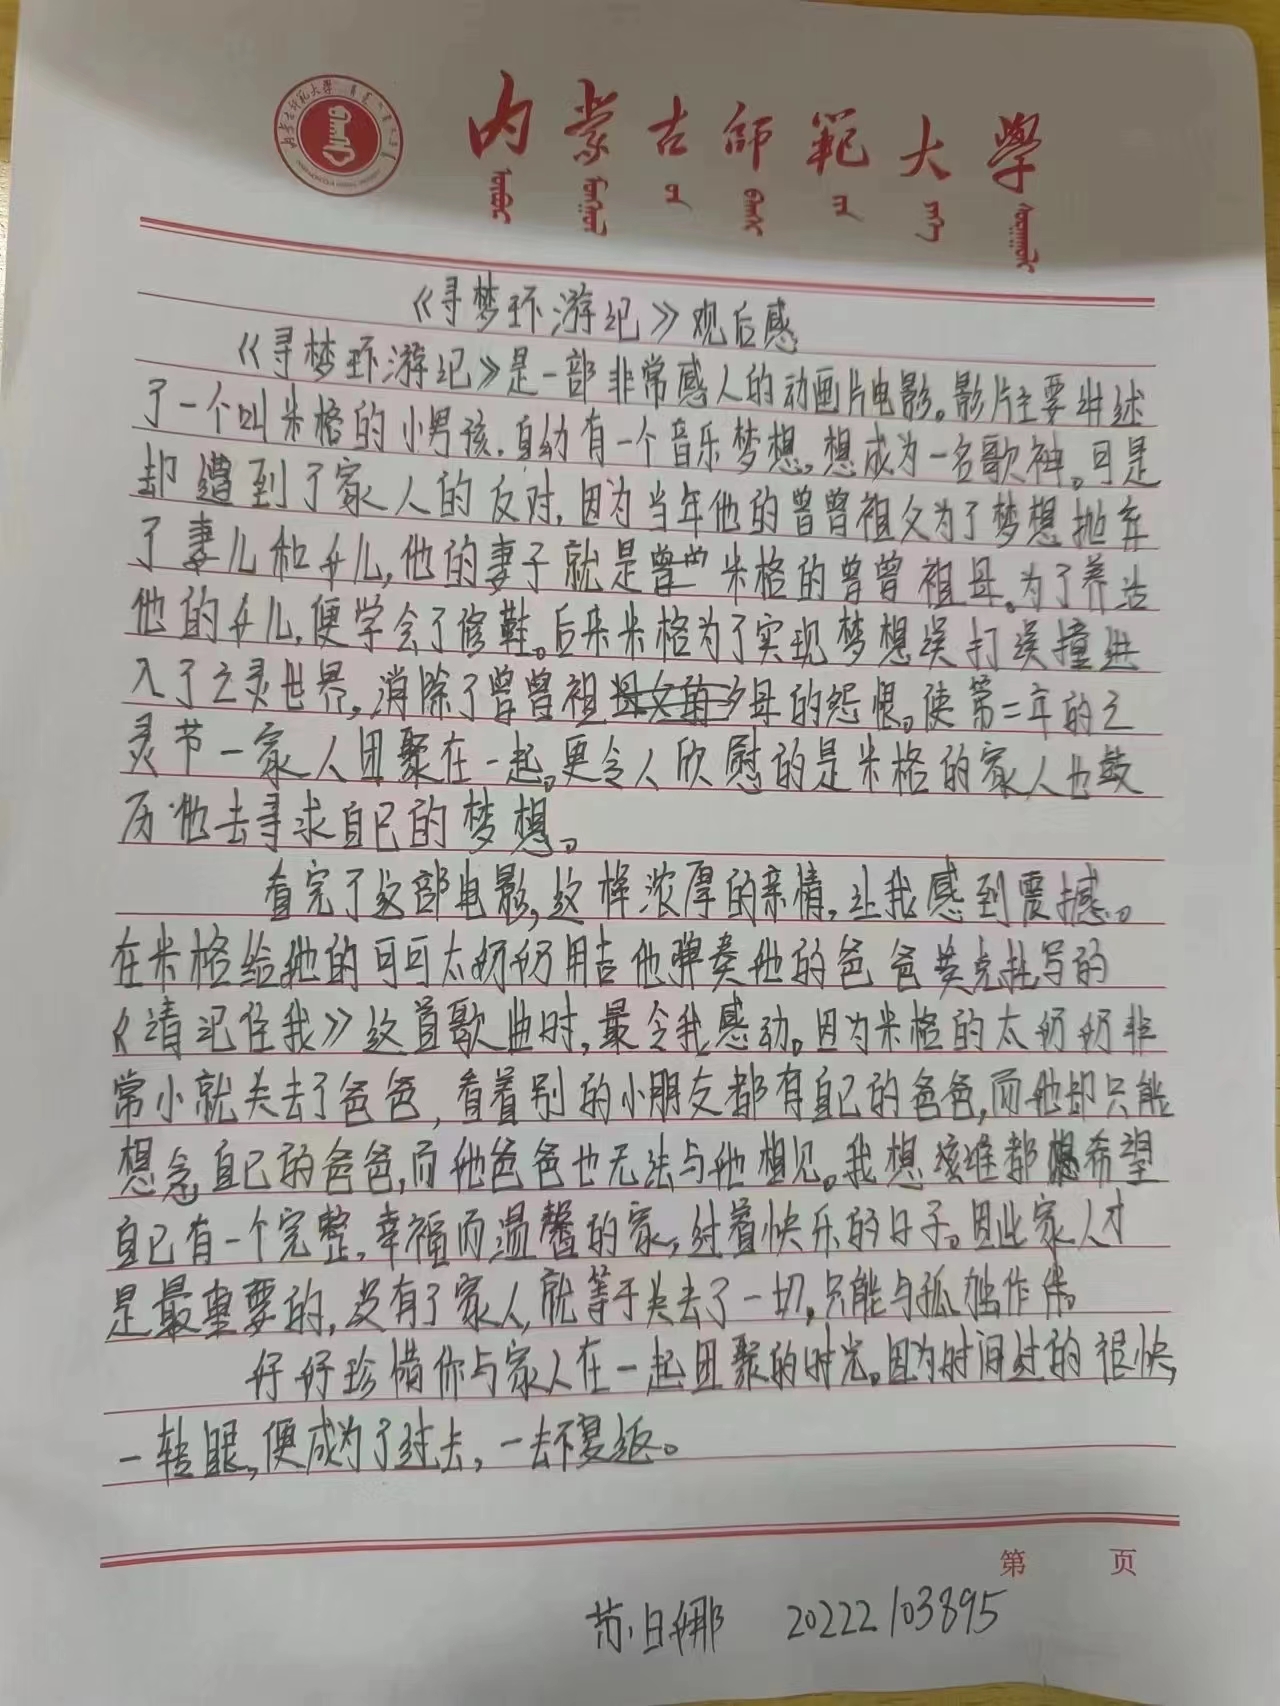 内蒙古师范大学
《寻梦环游记》观后感
《寻梦环游记》是一部非常感人的动画片电影。影片主要讲述
了一个叫米格的小男孩,自幼有一个音乐梦想,想成为一名歌神。可是
却遭到了家人的反对,因为当年他的曾曾祖父为了梦想抛弃
了妻儿和女儿,他的妻子就是米格的曾曾祖母。为了养活
他的女儿,便学会了修鞋。后来米格为了实现梦想误打误撞进
入了亡灵世界,消除了曾曾祖母的怨恨。使第二年的亡
灵节一家人团聚在一起。更令人欣慰的是米格的家人也鼓
历他去寻求自己的梦想。
看完了这部电影,这样浓厚的亲情,让我感到震撼。
在米格给她的可可太奶奶用吉他弹奏他的爸爸写的
《请记住我》这首歌曲时,最令我感动。因为米格的太奶奶非
常小就失去了爸爸,看着别的小朋友都有自己的爸爸,而他却只能
想念自己的爸爸,而他爸爸也无法与他相见。我想谁都希望
自己有一个完整,幸福而温馨的家,过着快乐的日子。因此家人才
是最重要的,没有了家人,就等于失去了一切,只能与孤独作伴。
好好珍惜你与家人在一起团聚的时光。因为时间过的很快,
一转眼,便成为了过去,一去不复返。
第 页
苏日娜 20222103895